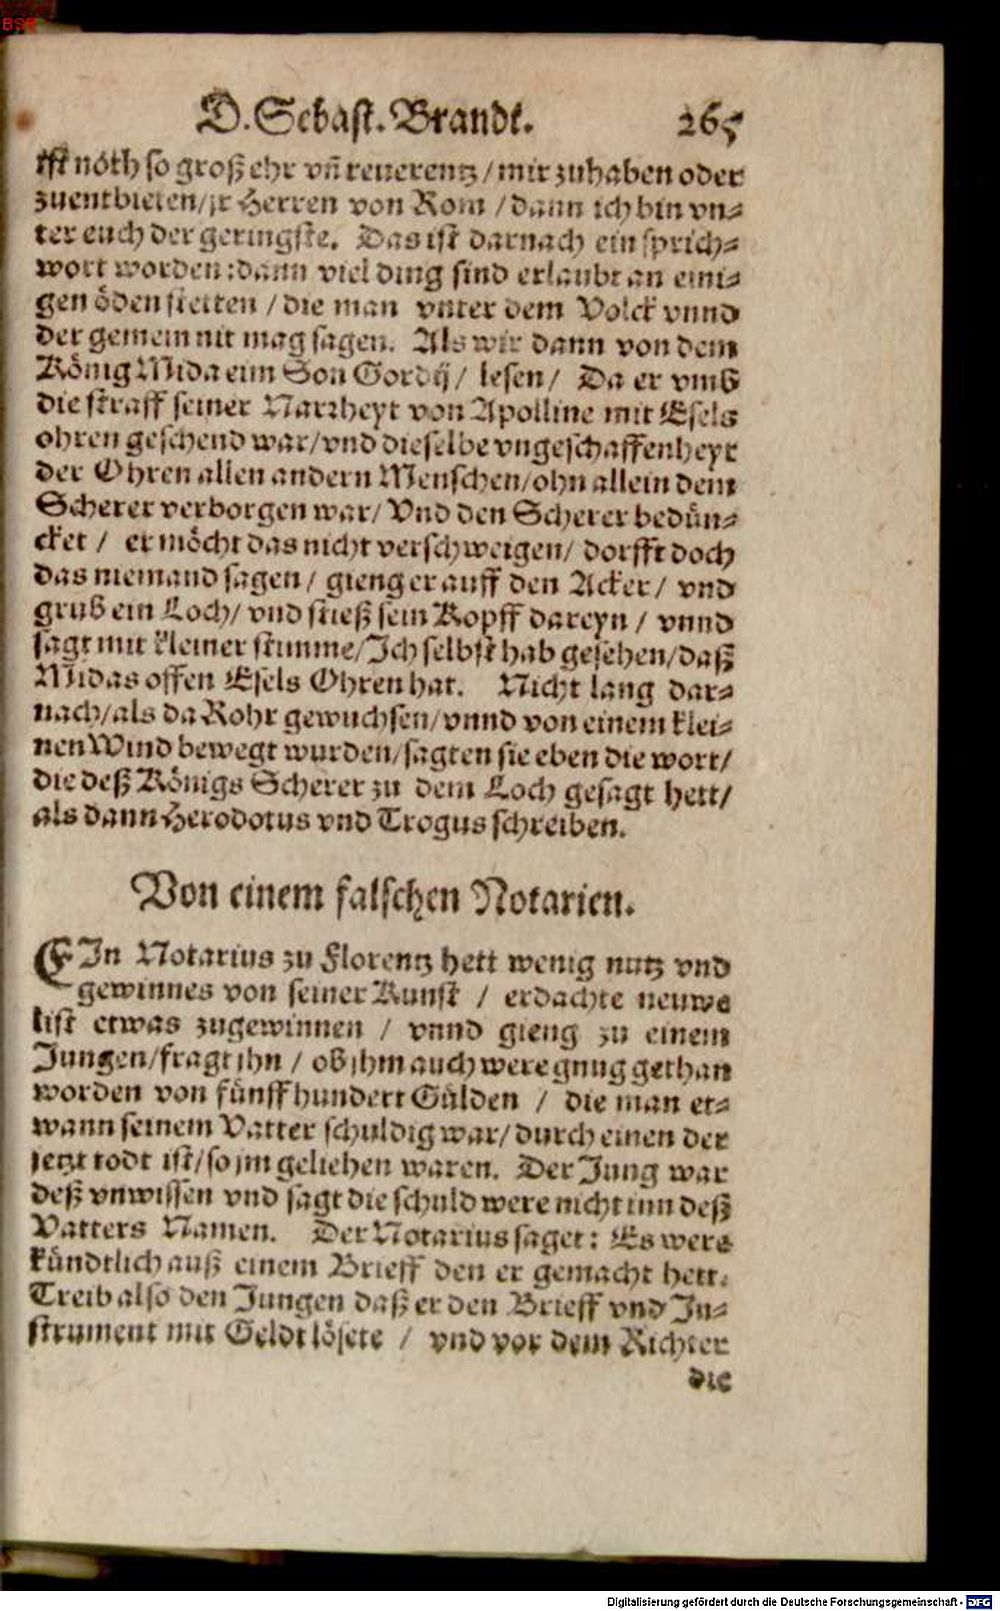 BSB
D. Sebast. Brandt. 265
ist nöth so groß ehr vñ reuerentz / mir zuhaben oder
zuentbieten / jr Herren von Rom / dann ich bin vn⸗
ter euch der geringste. Das ist darnach ein sprich⸗
wort worden: dann viel ding sind erlaubt an eini⸗
gen öden stetten / die man vnter dem Volck vnnd
der gemein nit mag sagen. Als wir dann von dem
König Mida eim Son Gordij / lesen / Da er vmb
die straff seiner Narrheyt von Apolline mit Esels
ohren geschend war / vnd dieselbe vngeschaffenheyt
der Ohren allen andern Menschen / ohn allein dem
Scherer verborgen war / Vnd den Scherer bedün⸗
cket / er möcht das nicht verschweigen / dorfft doch
das niemand sagen / gieng er auff den Acker / vnd
grub ein Loch / vnd stieß sein Kopff dareyn / vnnd
sagt mit kleiner stimme / Ich selbst hab gesehen / daß
Midas offen Esels Ohren hat. Nicht lang dar⸗
nach / als da Rohr gewuchsen / vnnd von einem klei⸗
nen Wind bewegt wurden / sagten sie eben die wort /
die deß Königs Scherer zu dem Loch gesagt hett /
als dann Herodotus vnd Trogus schreiben.
Von einem falschen Notarien.
EIn Notarius zu Florentz hett wenig nutz vnd
gewinnes von seiner Kunst / erdachte neuwe
list etwas zugewinnen / vnnd gieng zu einem
Jungen / fragt jhn / ob jhm auch were gnug gethan
worden von fünffhundert Gülden / die man et⸗
wann seinem Vatter schuldig war / durch einen der
jetzt todt ist / so jm geliehen waren. Der Jung war
deß vnwissen vnd sagt die schuld were nicht inn deß
Vatters Namen. Der Notarius saget: Es were
kündtlich auß einem Brieff den er gemacht hett.
Treib also den Jungen daß er den Brieff vnd In⸗
strument mit Geldt lösete / vnd vor dem Richter
die
Digitalisierung gefördert durch die Deutsche Forschungsgemeinschaft - DFG